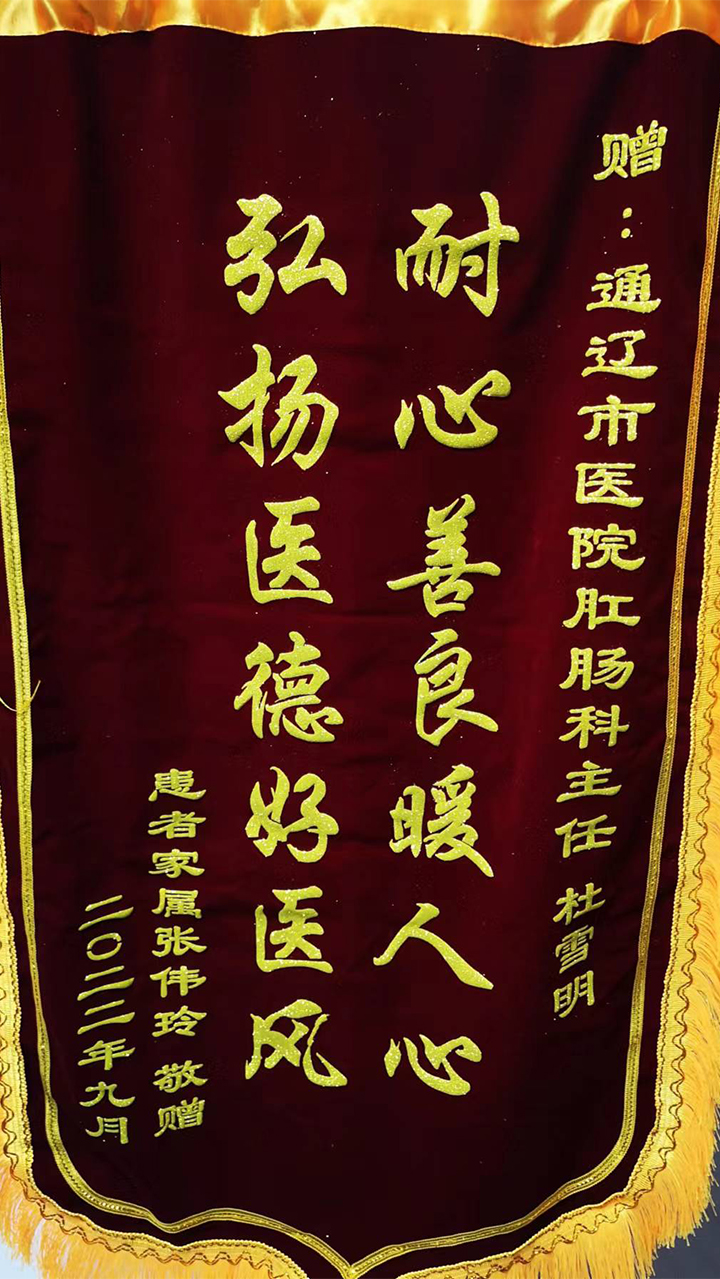 赠：通辽市医院肛肠科主任 杜雪明
耐心善良暖人心
弘扬医德好医风
患者家属张伟玲 敬赠
二〇二二年九月